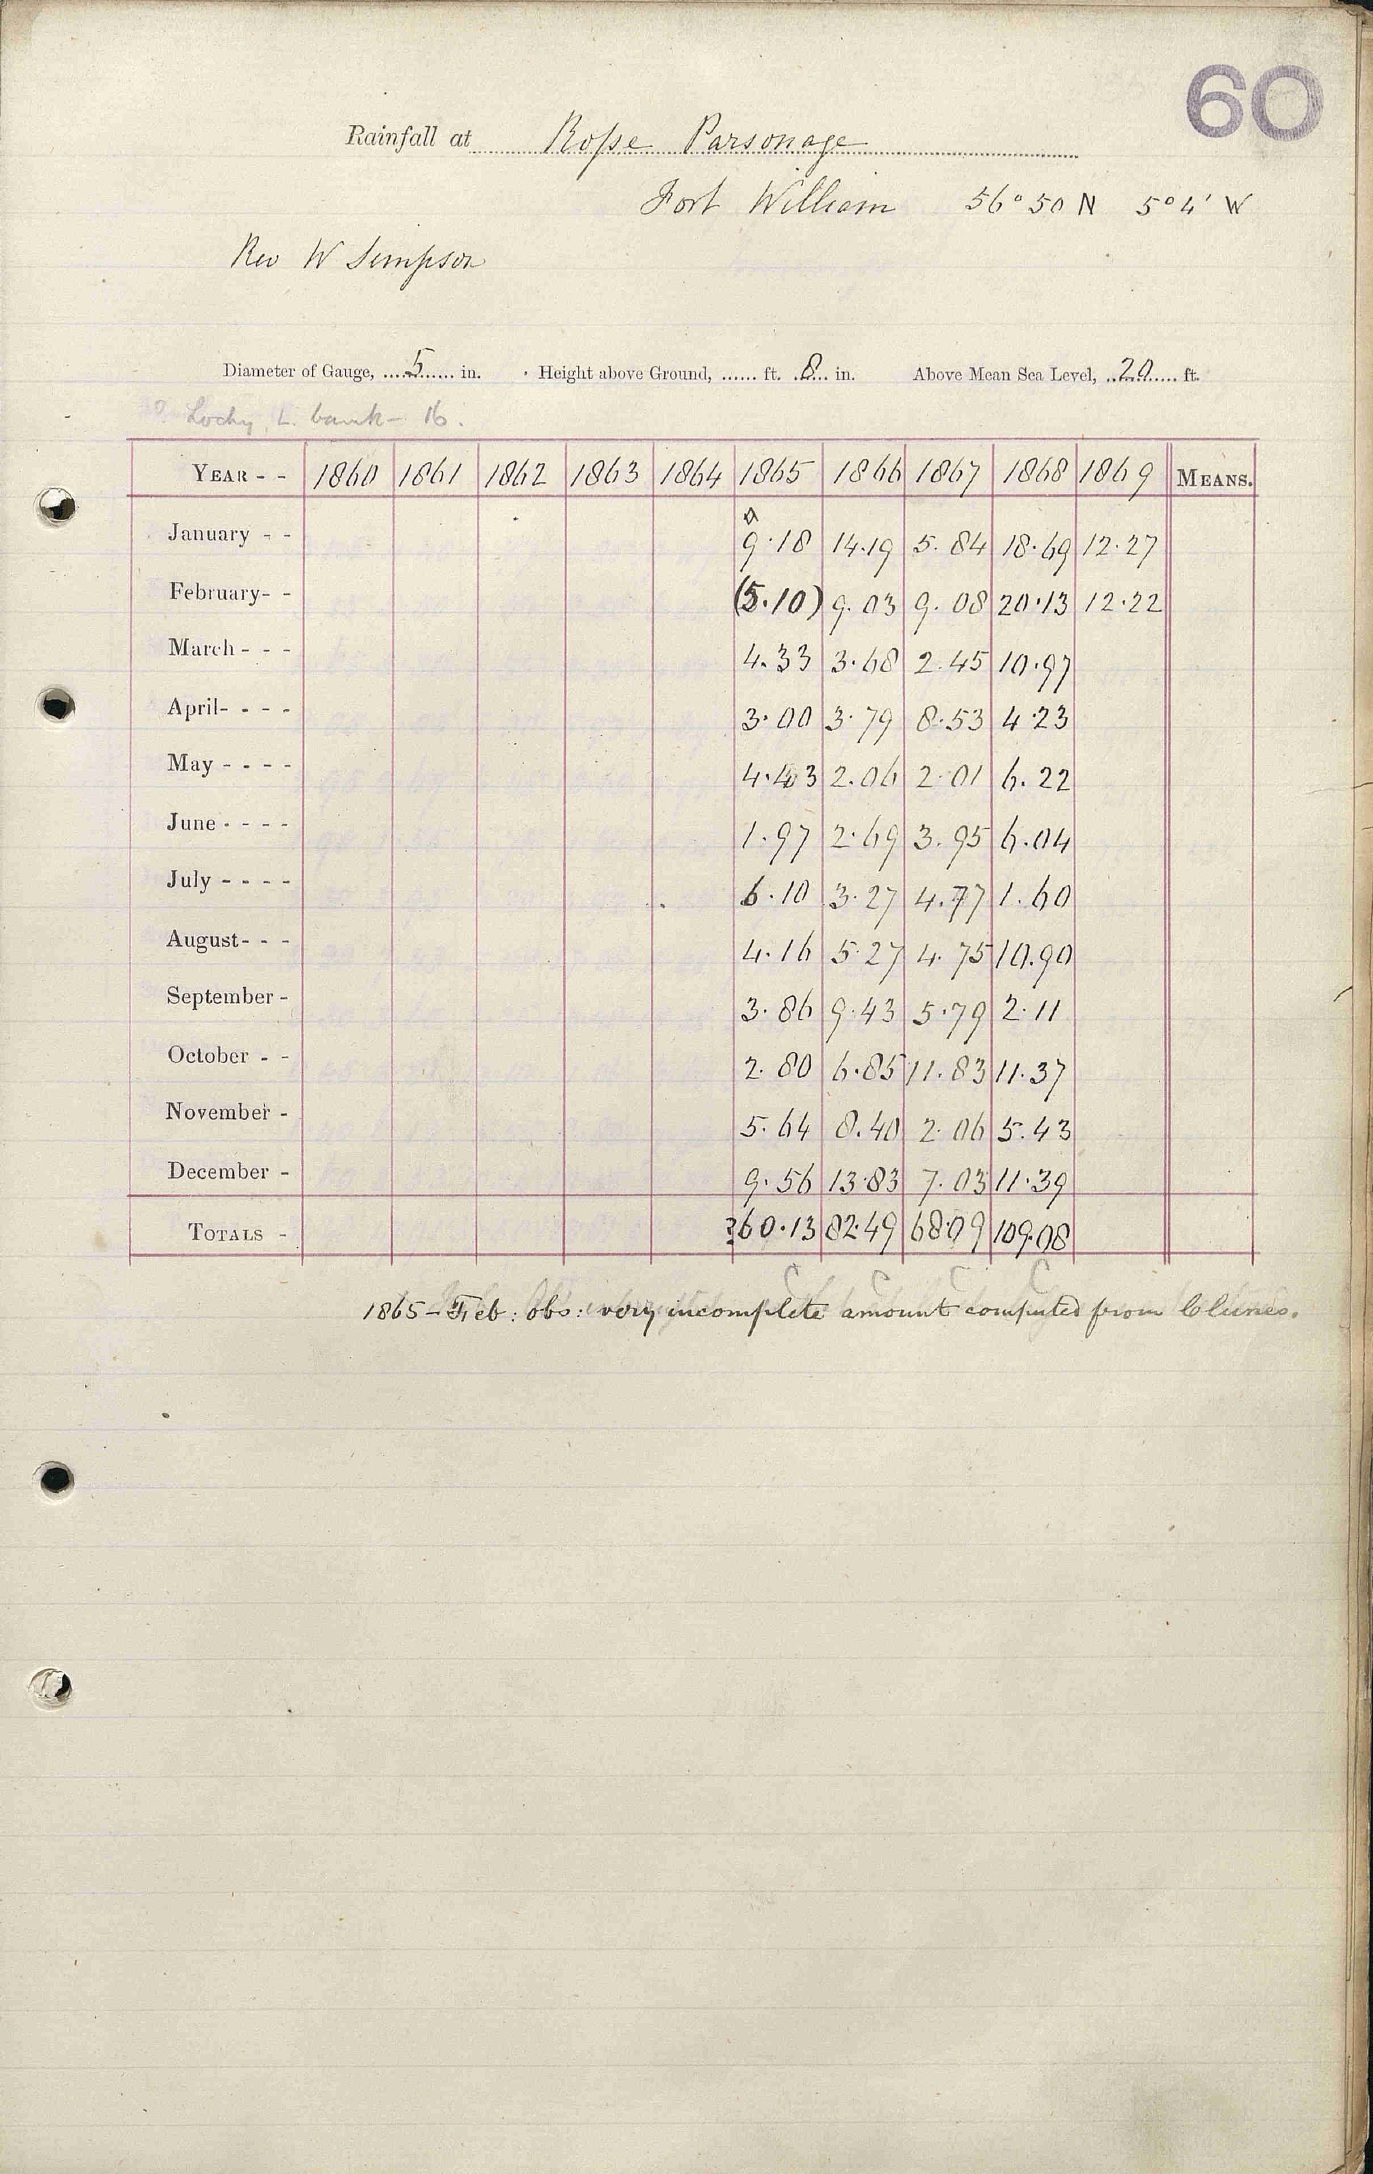 60
Rainfall at Roſse Parsonage
Fort William 56° 50 N 5° 4' W
Rev W Simpson
Diameter of Gauge, 5 in. Height above Ground, ...... ft. 8 in. Above Mean Sea Level, 20 ft.
Lochy, L. bank - 16.
YEAR - - 1860 1861 1862 1863 1864 1865 1866 1867 1868 1869 MEANS.
a
January - - 9.18 14.19 5.84 18.69 12.27
February - - (5.10) 9.03 9.08 20.13 12.22
March - - - 4.33 3.68 2.45 10.97
April - - - - 3.00 3.79 8.53 4.23
May - - - - 4.43 2.06 2.01 6.22
June - - - - 1.97 2.69 3.95 6.04
July - - - - 6.10 3.27 4.77 1.60
August - - - 4.16 5.27 4.75 10.90
September - 3.86 9.43 5.79 2.11
October - - 2.80 6.85 11.83 11.37
November - 5.64 8.40 2.06 5.43
December - 9.56 13.83 7.03 11.39
TOTALS - ?60.13 82.49 68.09 109.08
C C C C
1865 - Feb: obs: very incomplete amount computed from Clunes.